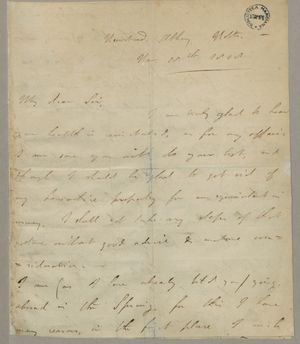 Newstead Abbey Notts.
Nov. 18th 1808
My dear Sir,
I am truly glad to hear
your health is reinstated, as for my affairs
I am sure you will do your best, and
though I should be glad to get rid of
my Lancashire property for an equivalent in
money, I shall not take any steps of that
nature without good advice & mature con-
-sideration.
I am (as I have already told you) going
abroad in the Spring, for this I have
many reasons, in the first place I wish